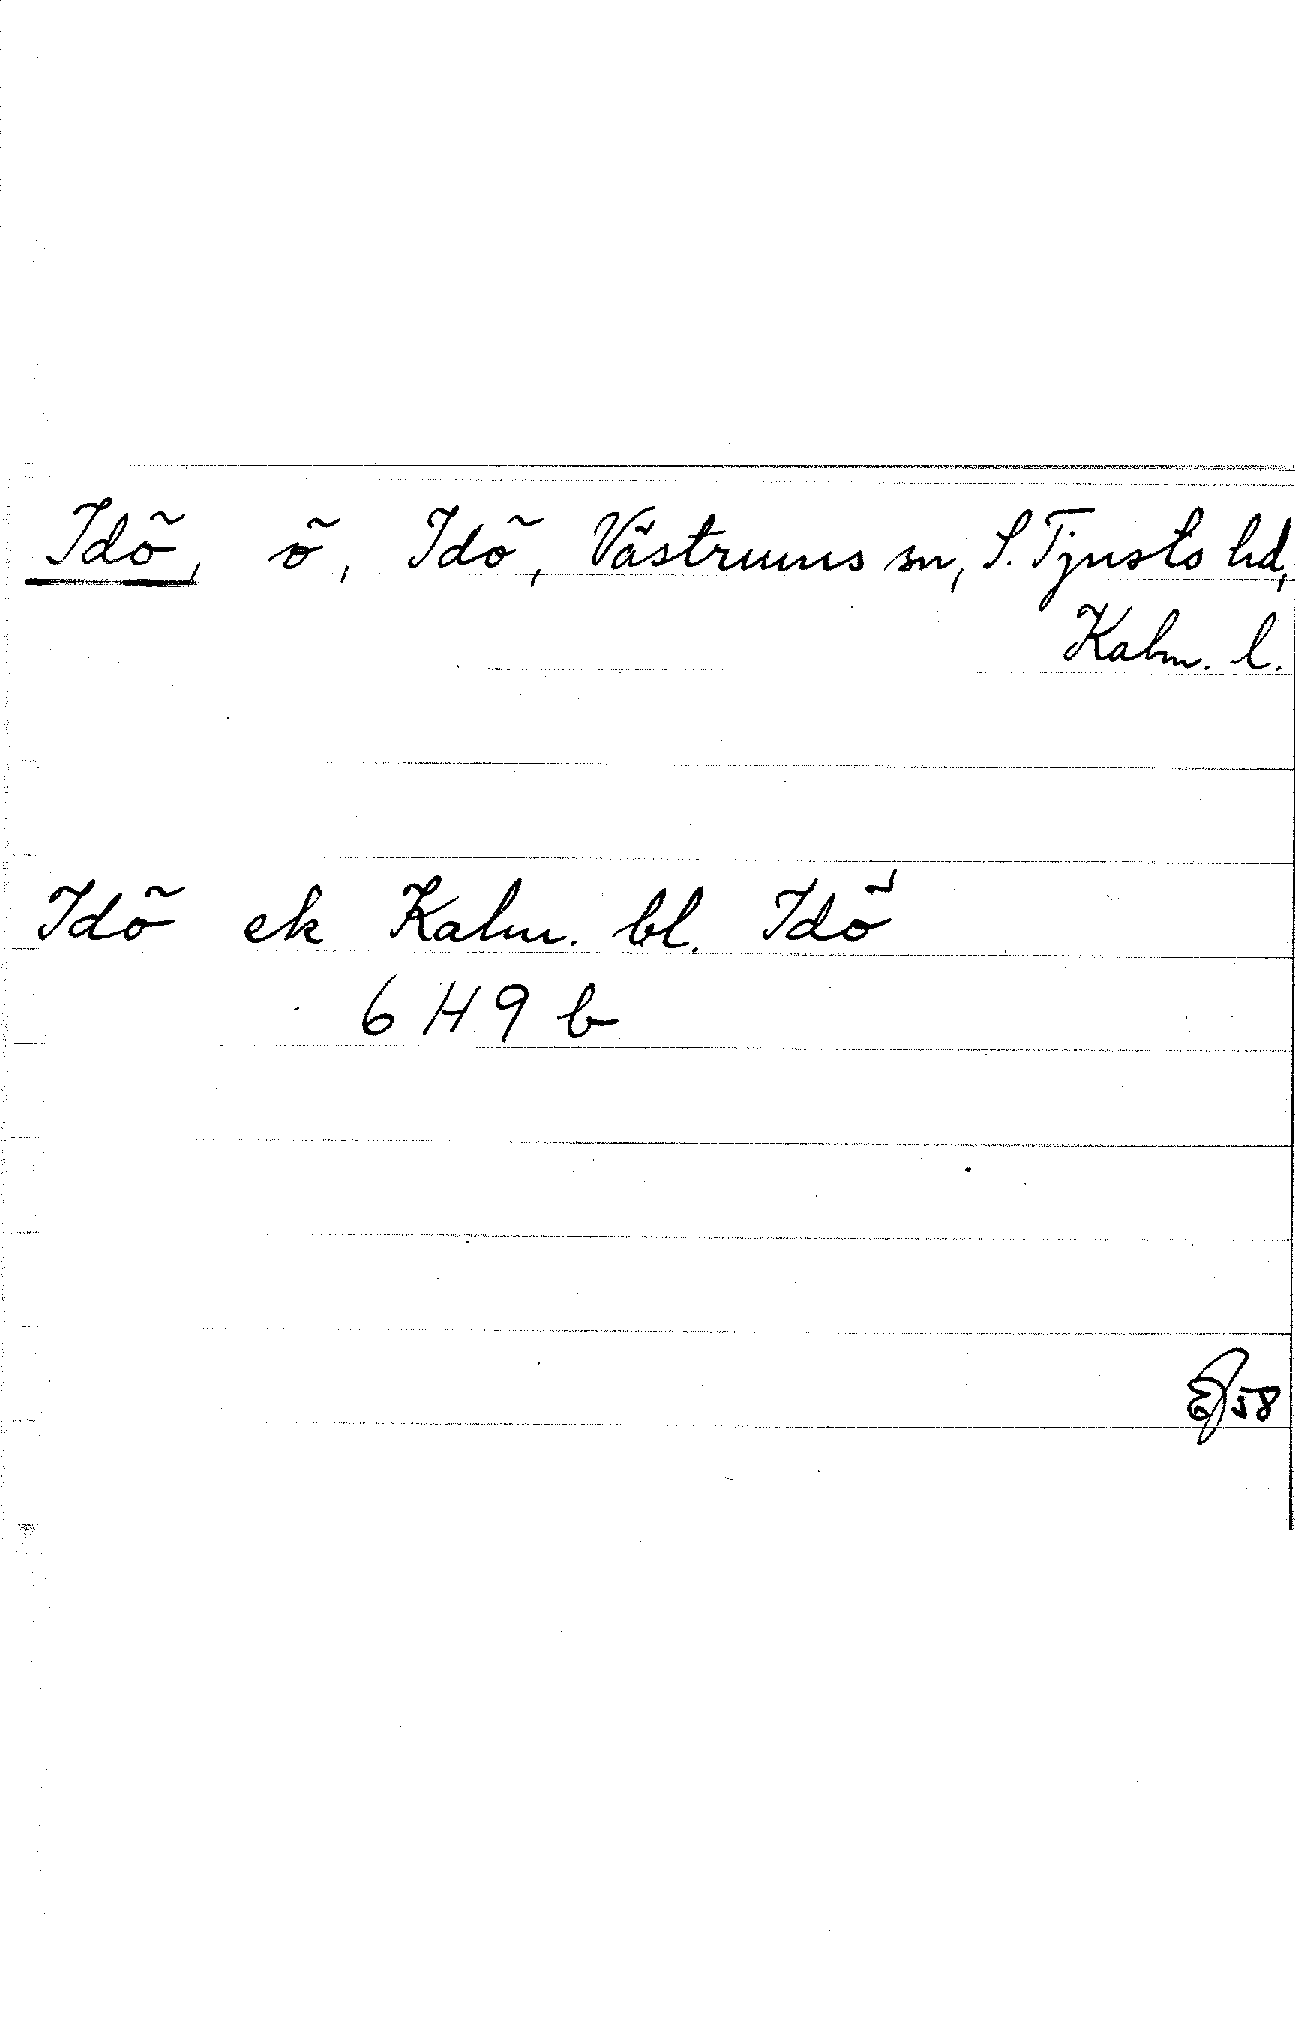 Idö, ö, Idö, Västrums sn, S. Tjusts hd,
Kalm. l.
Idö ek Kalm. bl. Idö
6 H 9 b
58